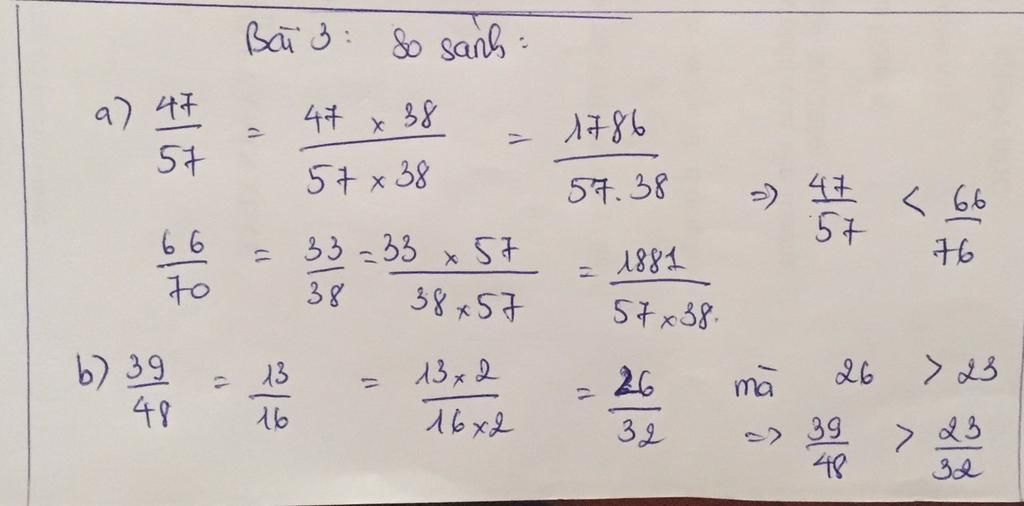 Bài 3: So sánh:
a) 47/57 = 47 x 38 / 57 x 38 = 1786 / 57.38
=> 47/57 < 66/76
66/70 = 33/38 = 33 x 57 / 38 x 57 = 1881 / 57 x 38.
b) 39/48 = 13/16 = 13 x 2 / 16 x 2 = 26/32 mà 26 > 23
=> 39/48 > 23/32